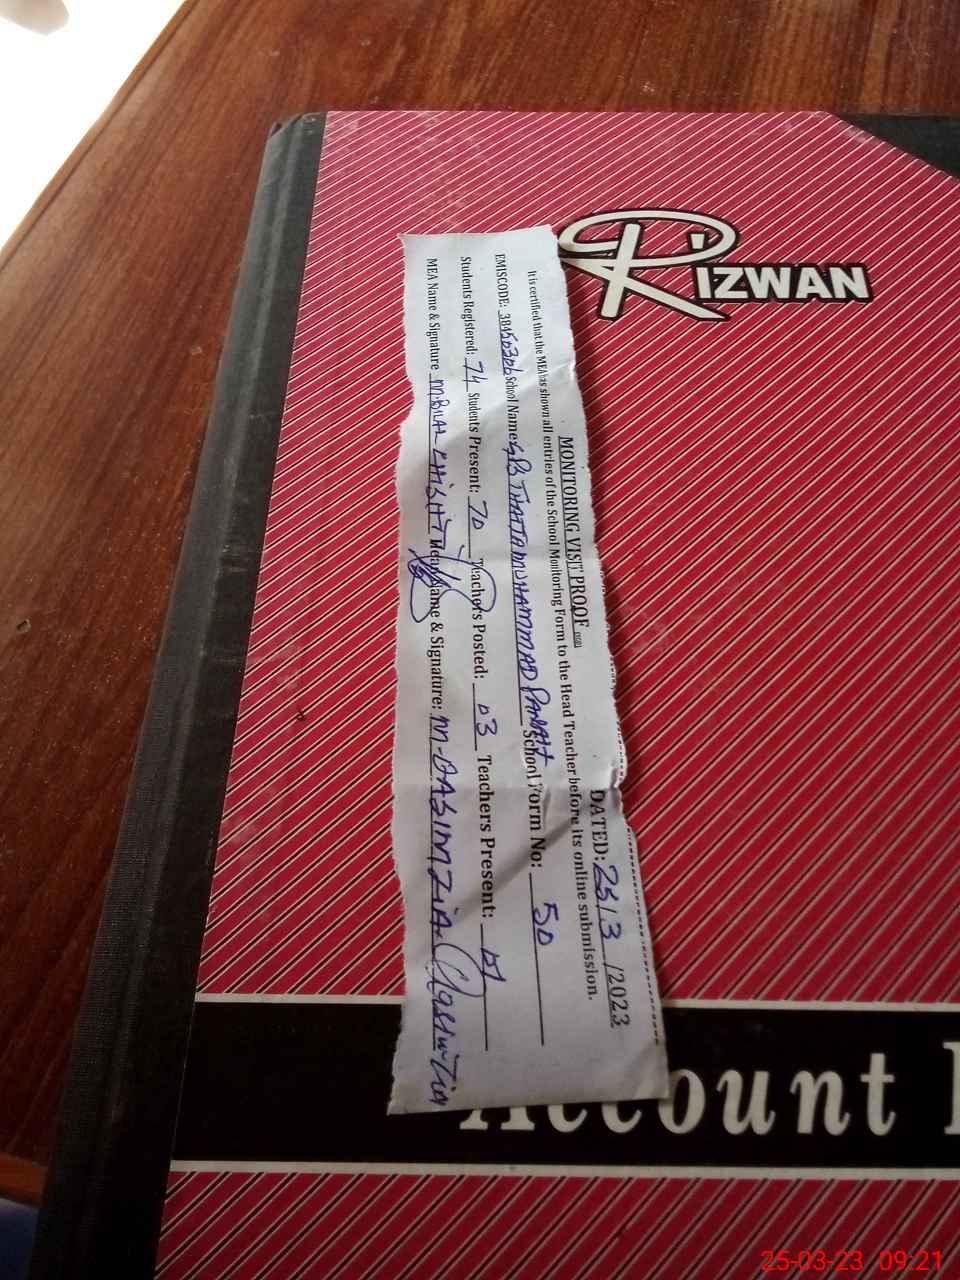 RIZWAN
MONITORING VISIT PROOF
DATED: 25/3/2023
It is certified that the MEA has shown all entries of the School Monitoring Form to the Head Teacher before its online submission.
EMISCODE: 38450306 School Name: GPS THATTA MUHAMMAD PANAH School Form No: 50
Students Registered: 74 Students Present: 70 Teachers Posted: 03 Teachers Present: 01
MEA Name & Signature M. BILAL CHISHTI Head Name & Signature: M. QASIM ZIA
Account
25-03-23 09:21